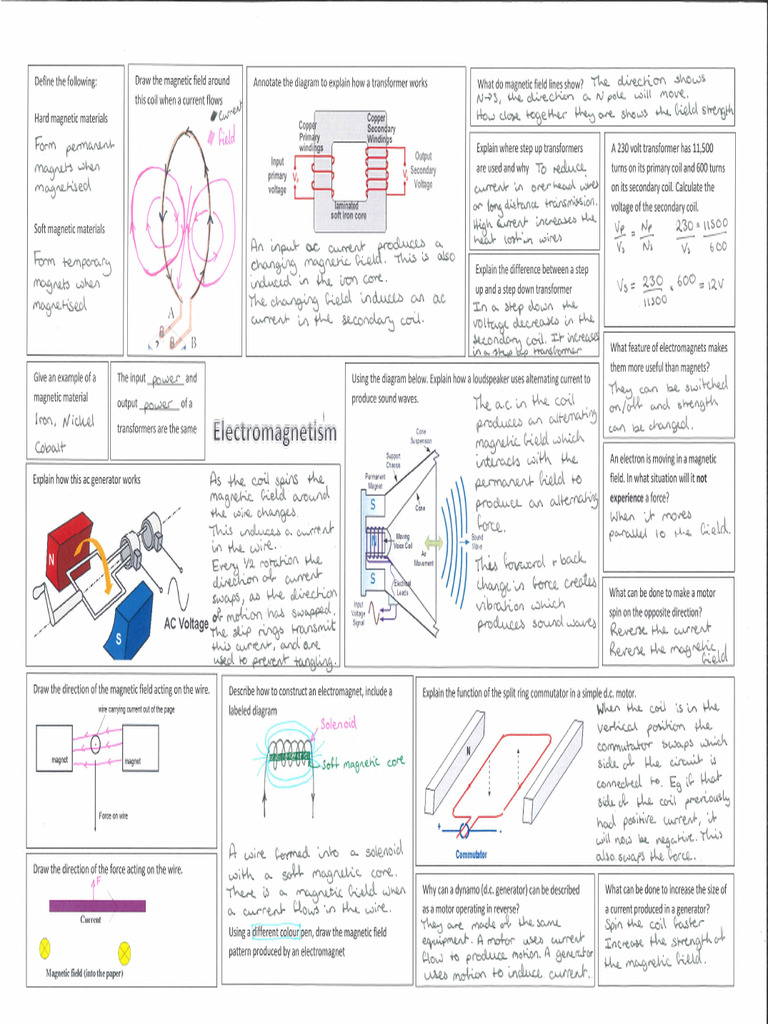 Define the following:
Hard magnetic materials
Form permanent
magnets when
magnetised
Soft magnetic materials
Form temporary
magnets when
magnetised
Draw the magnetic field around
this coil when a current flows
Current
Field
A
B
Annotate the diagram to explain how a transformer works
Copper
Primary
windings
Copper
Secondary
Windings
Input
primary
voltage
Output
Secondary
Voltage
laminated
soft iron core
An input ac current produces a
changing magnetic field. This is also
induced in the iron core.
The changing field induces an ac
current in the secondary coil.
What do magnetic field lines show? The direction shows
N→S, the direction a N pole will move.
How close together they are shows the field strength
Explain where step up transformers
are used and why To reduce
current in overhead wires
or long distance transmission.
High current increases the
heat lost in wires
A 230 volt transformer has 11,500
turns on its primary coil and 600 turns
on its secondary coil. Calculate the
voltage of the secondary coil.
Vp = Np 230 = 11500
Vs Ns Vs 600
Vs = 230 × 600 = 12V
11500
Explain the difference between a step
up and a step down transformer
In a step down the
voltage decreases in the
secondary coil. It increases
in a step up transformer
What feature of electromagnets makes
them more useful than magnets?
They can be switched
on/off and strength
can be changed.
Give an example of a
magnetic material
Iron, Nickel
Cobalt
The input power and
output power of a
transformers are the same
Electromagnetism
Using the diagram below. Explain how a loudspeaker uses alternating current to
produce sound waves.
Cone
Suspension
Support
Chassis
Permanent
Magnet
Cone
S
N
S
Moving
Voice Coil
Air
Movement
Sound
Wave
Electrical
Leads
Input
Voltage
Signal
The a.c. in the coil
produces an alternating
magnetic field which
interacts with the
permanent field to
produce an alternating
force.
This forward + back
change in force creates
vibration which
produces sound waves
An electron is moving in a magnetic
field. In what situation will it not
experience a force?
When it moves
parallel to the field.
Explain how this ac generator works
N
S
AC Voltage
As the coil spins the
magnetic field around
the wire changes.
This induces a current
in the wire.
Every ½ rotation the
direction of current
swaps, as the direction
of motion has swapped.
The slip rings transmit
this current, and are
used to prevent tangling.
What can be done to make a motor
spin on the opposite direction?
Reverse the current
Reverse the magnetic
field
Draw the direction of the magnetic field acting on the wire.
wire carrying current out of the page
magnet
magnet
Force on wire
Describe how to construct an electromagnet, include a
labeled diagram
Solenoid
Soft magnetic core
A wire formed into a solenoid
with a soft magnetic core.
There is a magnetic field when
a current flows in the wire.
Using a different colour pen, draw the magnetic field
pattern produced by an electromagnet
Explain the function of the split ring commutator in a simple d.c. motor.
N
+
-
Commutator
When the coil is in the
vertical position the
commutator swaps which
side of the circuit is
connected to. Eg if that
side of the coil previously
had positive current, it
will now be negative. This
also swaps the force.
Draw the direction of the force acting on the wire.
F
Current
Magnetic field (into the paper)
Why can a dynamo (d.c. generator) can be described
as a motor operating in reverse?
They are made of the same
equipment. A motor uses current
flow to produce motion. A generator
uses motion to induce current.
What can be done to increase the size of
a current produced in a generator?
Spin the coil faster
Increase the strength of
the magnetic field.